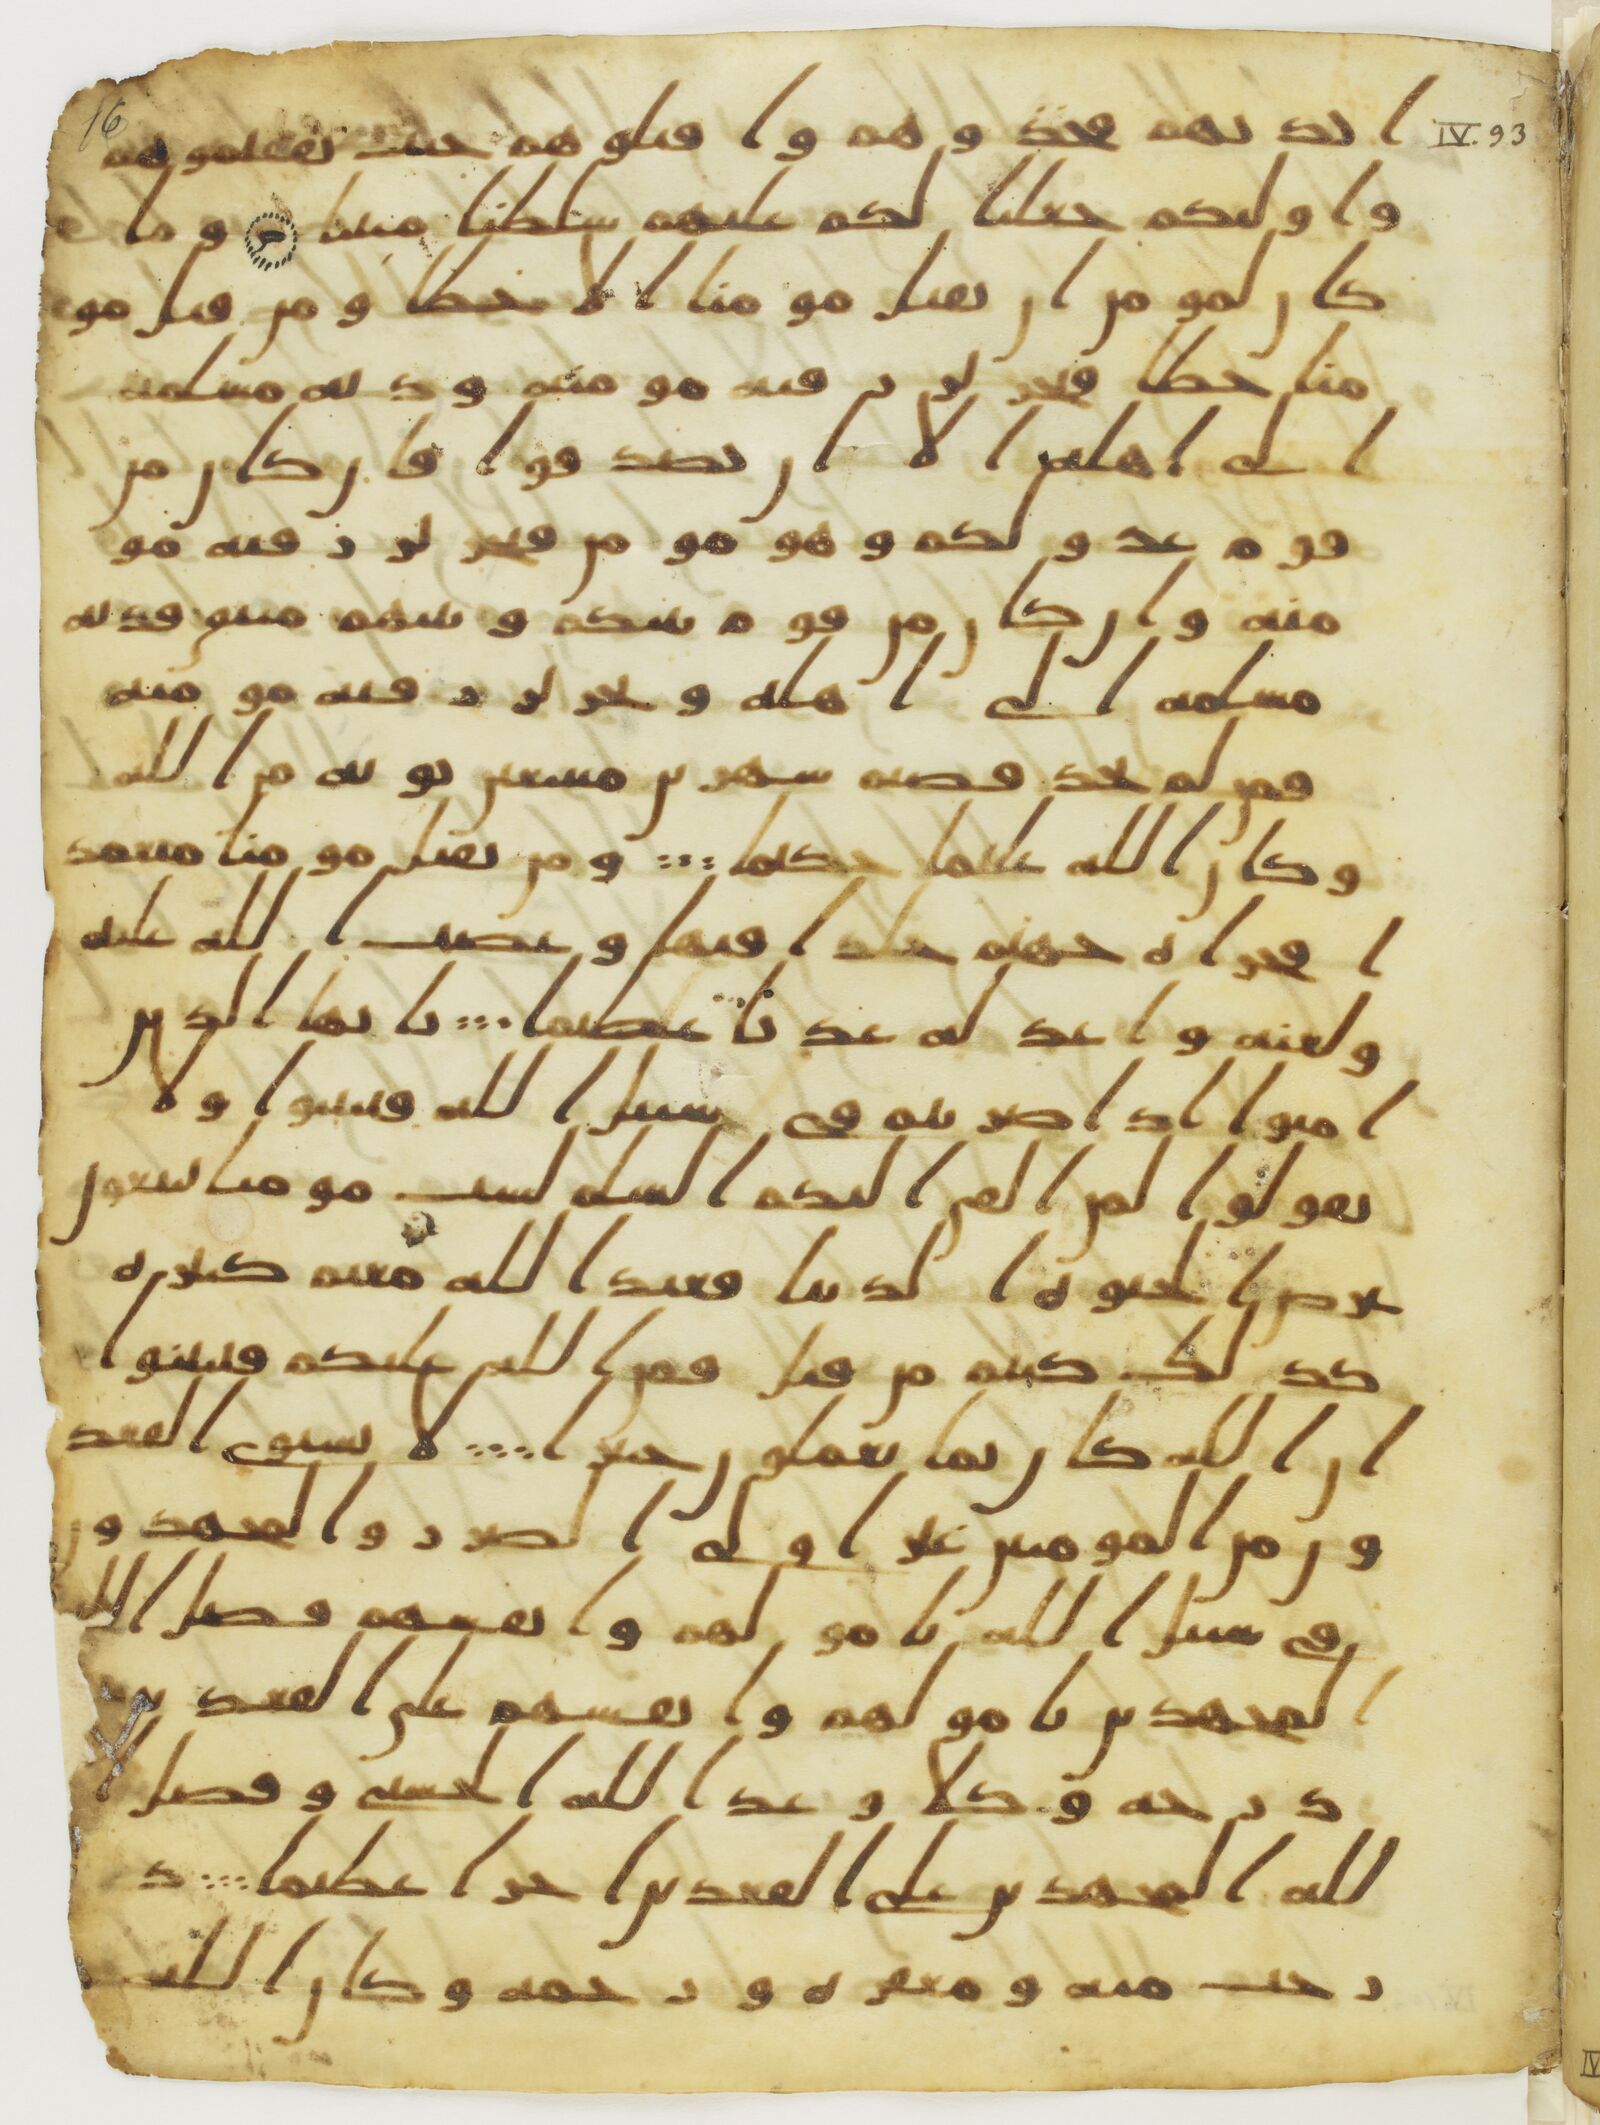 16
IV. 93
ايديهم فخذوهم واقتلوهم حيث ثقفتموهم
واوليكم جعلنا لكم عليهم سلطنا مبينا وما
كان لمومن ان يقتل مومنا الا خطا ومن قتل مو
منا خطا فتحرير رقبة مومنة ودية مسلمة
الى اهله الا ان يصدقوا فان كان من
قوم عدو لكم وهو مومن فتحرير رقبة مو
منة وان كان من قوم بينكم وبينهم ميثق فدية
مسلمة الى اهله وتحرير رقبة مومنة
فمن لم يجد فصيم شهرين متتبعين توبة من الله
وكان الله عليما حكيما ومن يقتل مومنا متعمد
ا فجزاه جهنم خلدا فيها وغضب الله عليه
ولعنه واعد له عذابا عظيما يايها الذين
امنوا اذا ضربتم في سبيل الله فتبينوا ولا
تقولوا لمن القى اليكم السلم لست مومنا تبتغون
عرض الحيوة الدنيا فعند الله مغنم كثيرة
كذلك كنتم من قبل فمن الله عليكم فتبينوا
ان الله كان بما تعملون خبيرا لا يستوى القعد
ون من المومنين غير اولى الضرر والمجهدون
في سبيل الله بامولهم وانفسهم فضل الله
المجهدين بامولهم وانفسهم على القعدين
درجة وكلا وعد الله الحسنى وفضل ا
لله المجهدين على القعدين اجرا عظيما د
رجت منه ومغفرة ورحمة وكان الله